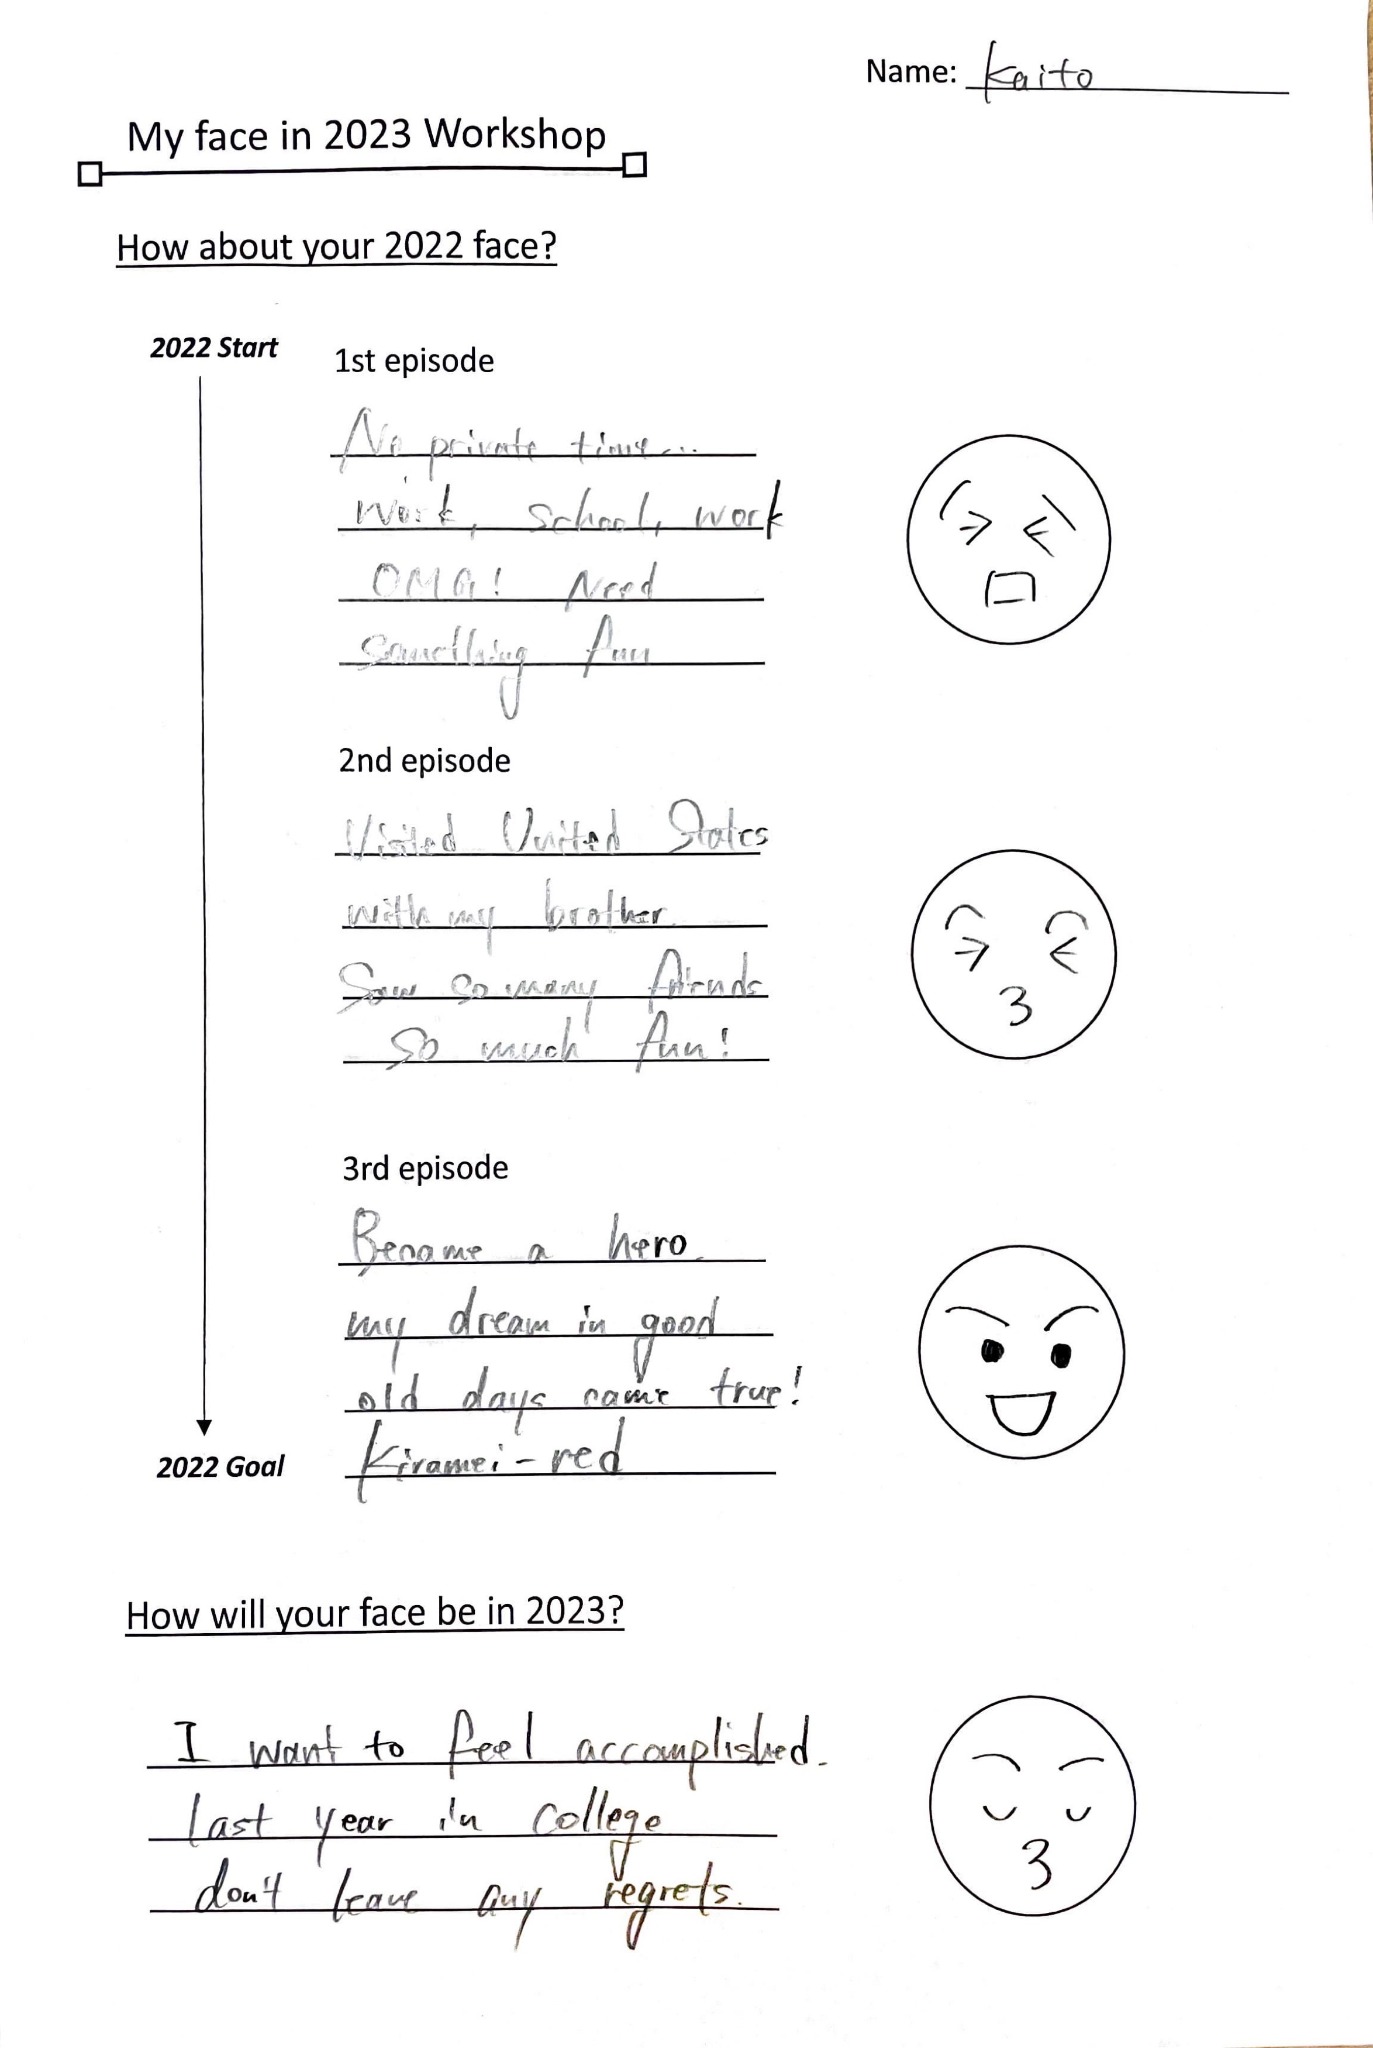 Name: Kaito
My face in 2023 Workshop
How about your 2022 face?
2022 Start
1st episode
No private time...
work, school, work
OMG! Need
something fun
2nd episode
Visited United States
with my brother
Saw so many friends
so much fun!
3rd episode
Became a hero
my dream in good
old days came true!
Kiramei-red
2022 Goal
How will your face be in 2023?
I want to feel accomplished.
last year in college
don't leave any regrets.